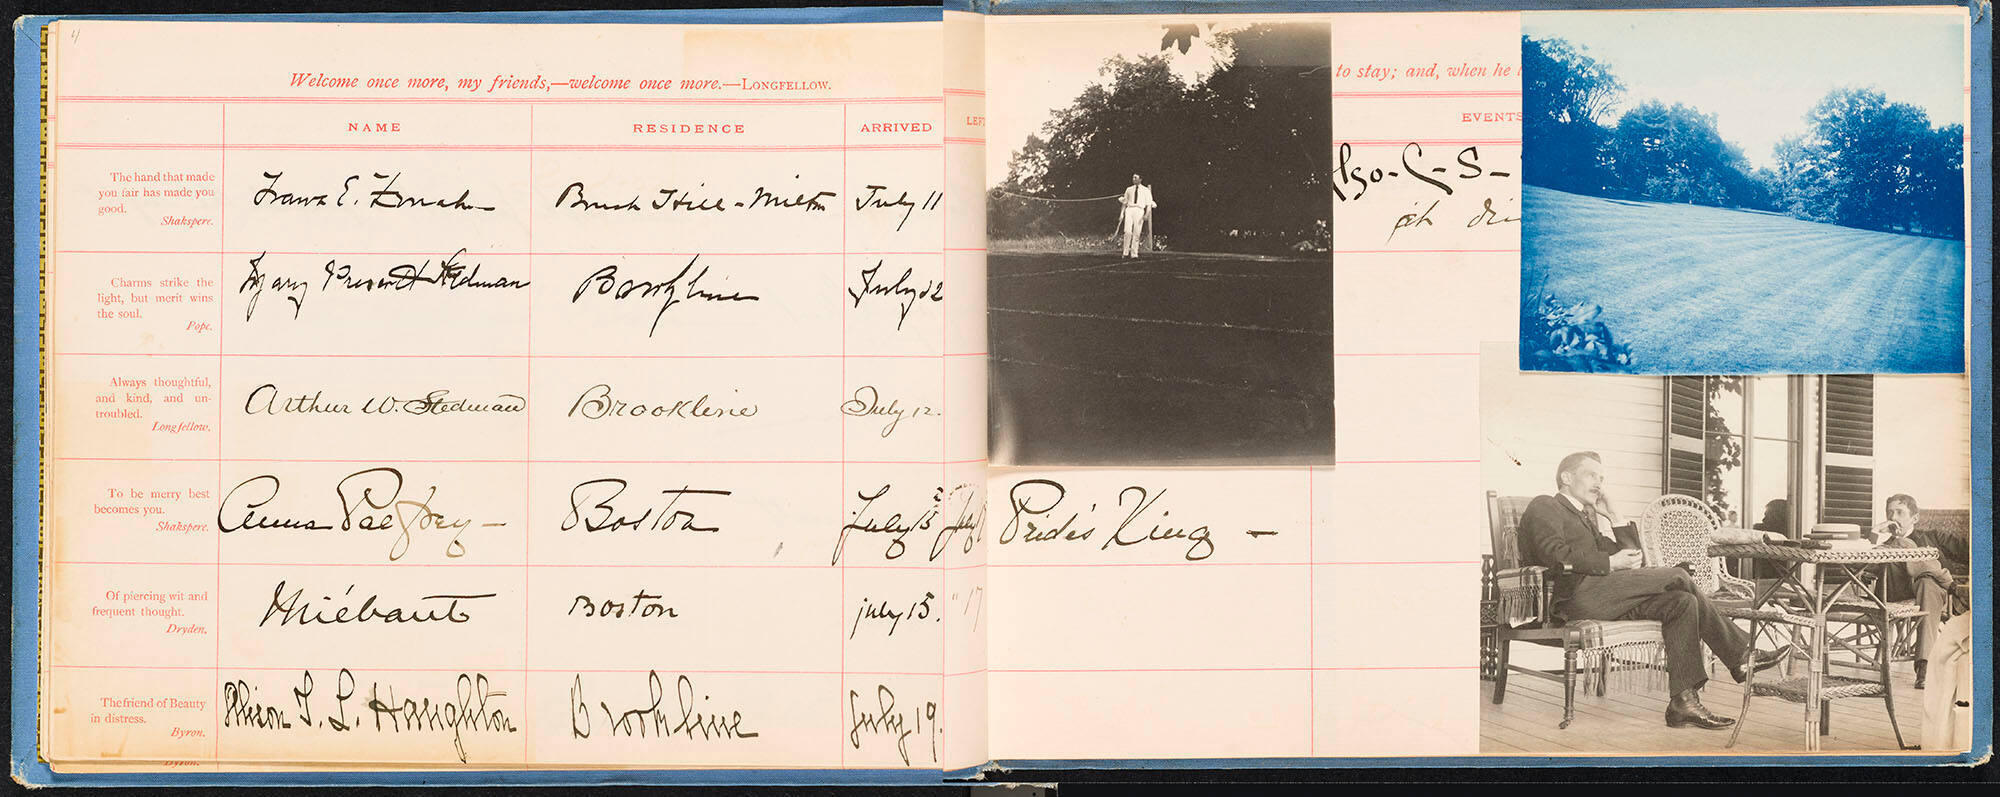 4
Welcome once more, my friends,—welcome once more.—LONGFELLOW.
to stay; and, when he
NAME RESIDENCE ARRIVED LEFT EVENTS
The hand that made
you fair has made you
good.
Shakspere.
E. Brush Hill - Milton July 11
Also - C - S -
at
Charms strike the
light, but merit wins
the soul.
Pope.
Mary Prescott Stedman Brookline July 12
Always thoughtful,
and kind, and un-
troubled.
Longfellow.
Arthur W. Stedman Brookline July 12.
To be merry best
becomes you.
Shakspere.
Anna Palfrey — Boston July 15 July Pride's King —
Of piercing wit and
frequent thought.
Dryden.
Boston july 15. " 17
The friend of Beauty
in distress.
Byron.
Alison T. L. Haughton Brookline July 19.
Byron.